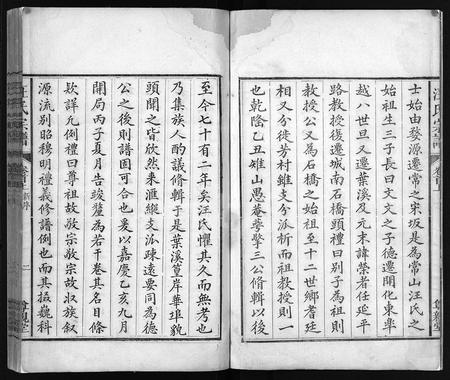 士始由婺源遷常之宋坂是為常山汪氏之
始祖生三子長曰文文之子德遷開化東
越八世旦又遷葉溪及元末諱縈者任延平
路教授復遷城南石橋頭禮曰別子為祖則
教授公又為石橋之始祖至十二世鄉耆廷
相又分徙芳村雖支分派析而祖教授則一
也乾隆乙丑雉山愚菴季擎三公脩輯以後
汪氏宗譜 卷首 二
至今七十有二年矣汪氏懼其久而無考也
乃集族人酌議脩輯于是葉溪篁岸華埠貌
頭聞之皆欣然来滙縱支派疎遠要同為德
公之後則譜固可合也爰以嘉慶乙亥九月
開局丙子夏月告竣釐為若干卷其名目條
欵詳凡例禮曰尊祖故敬宗敬宗故収族敘
源流別昭穆明禮義修譜例也而其拔巍科